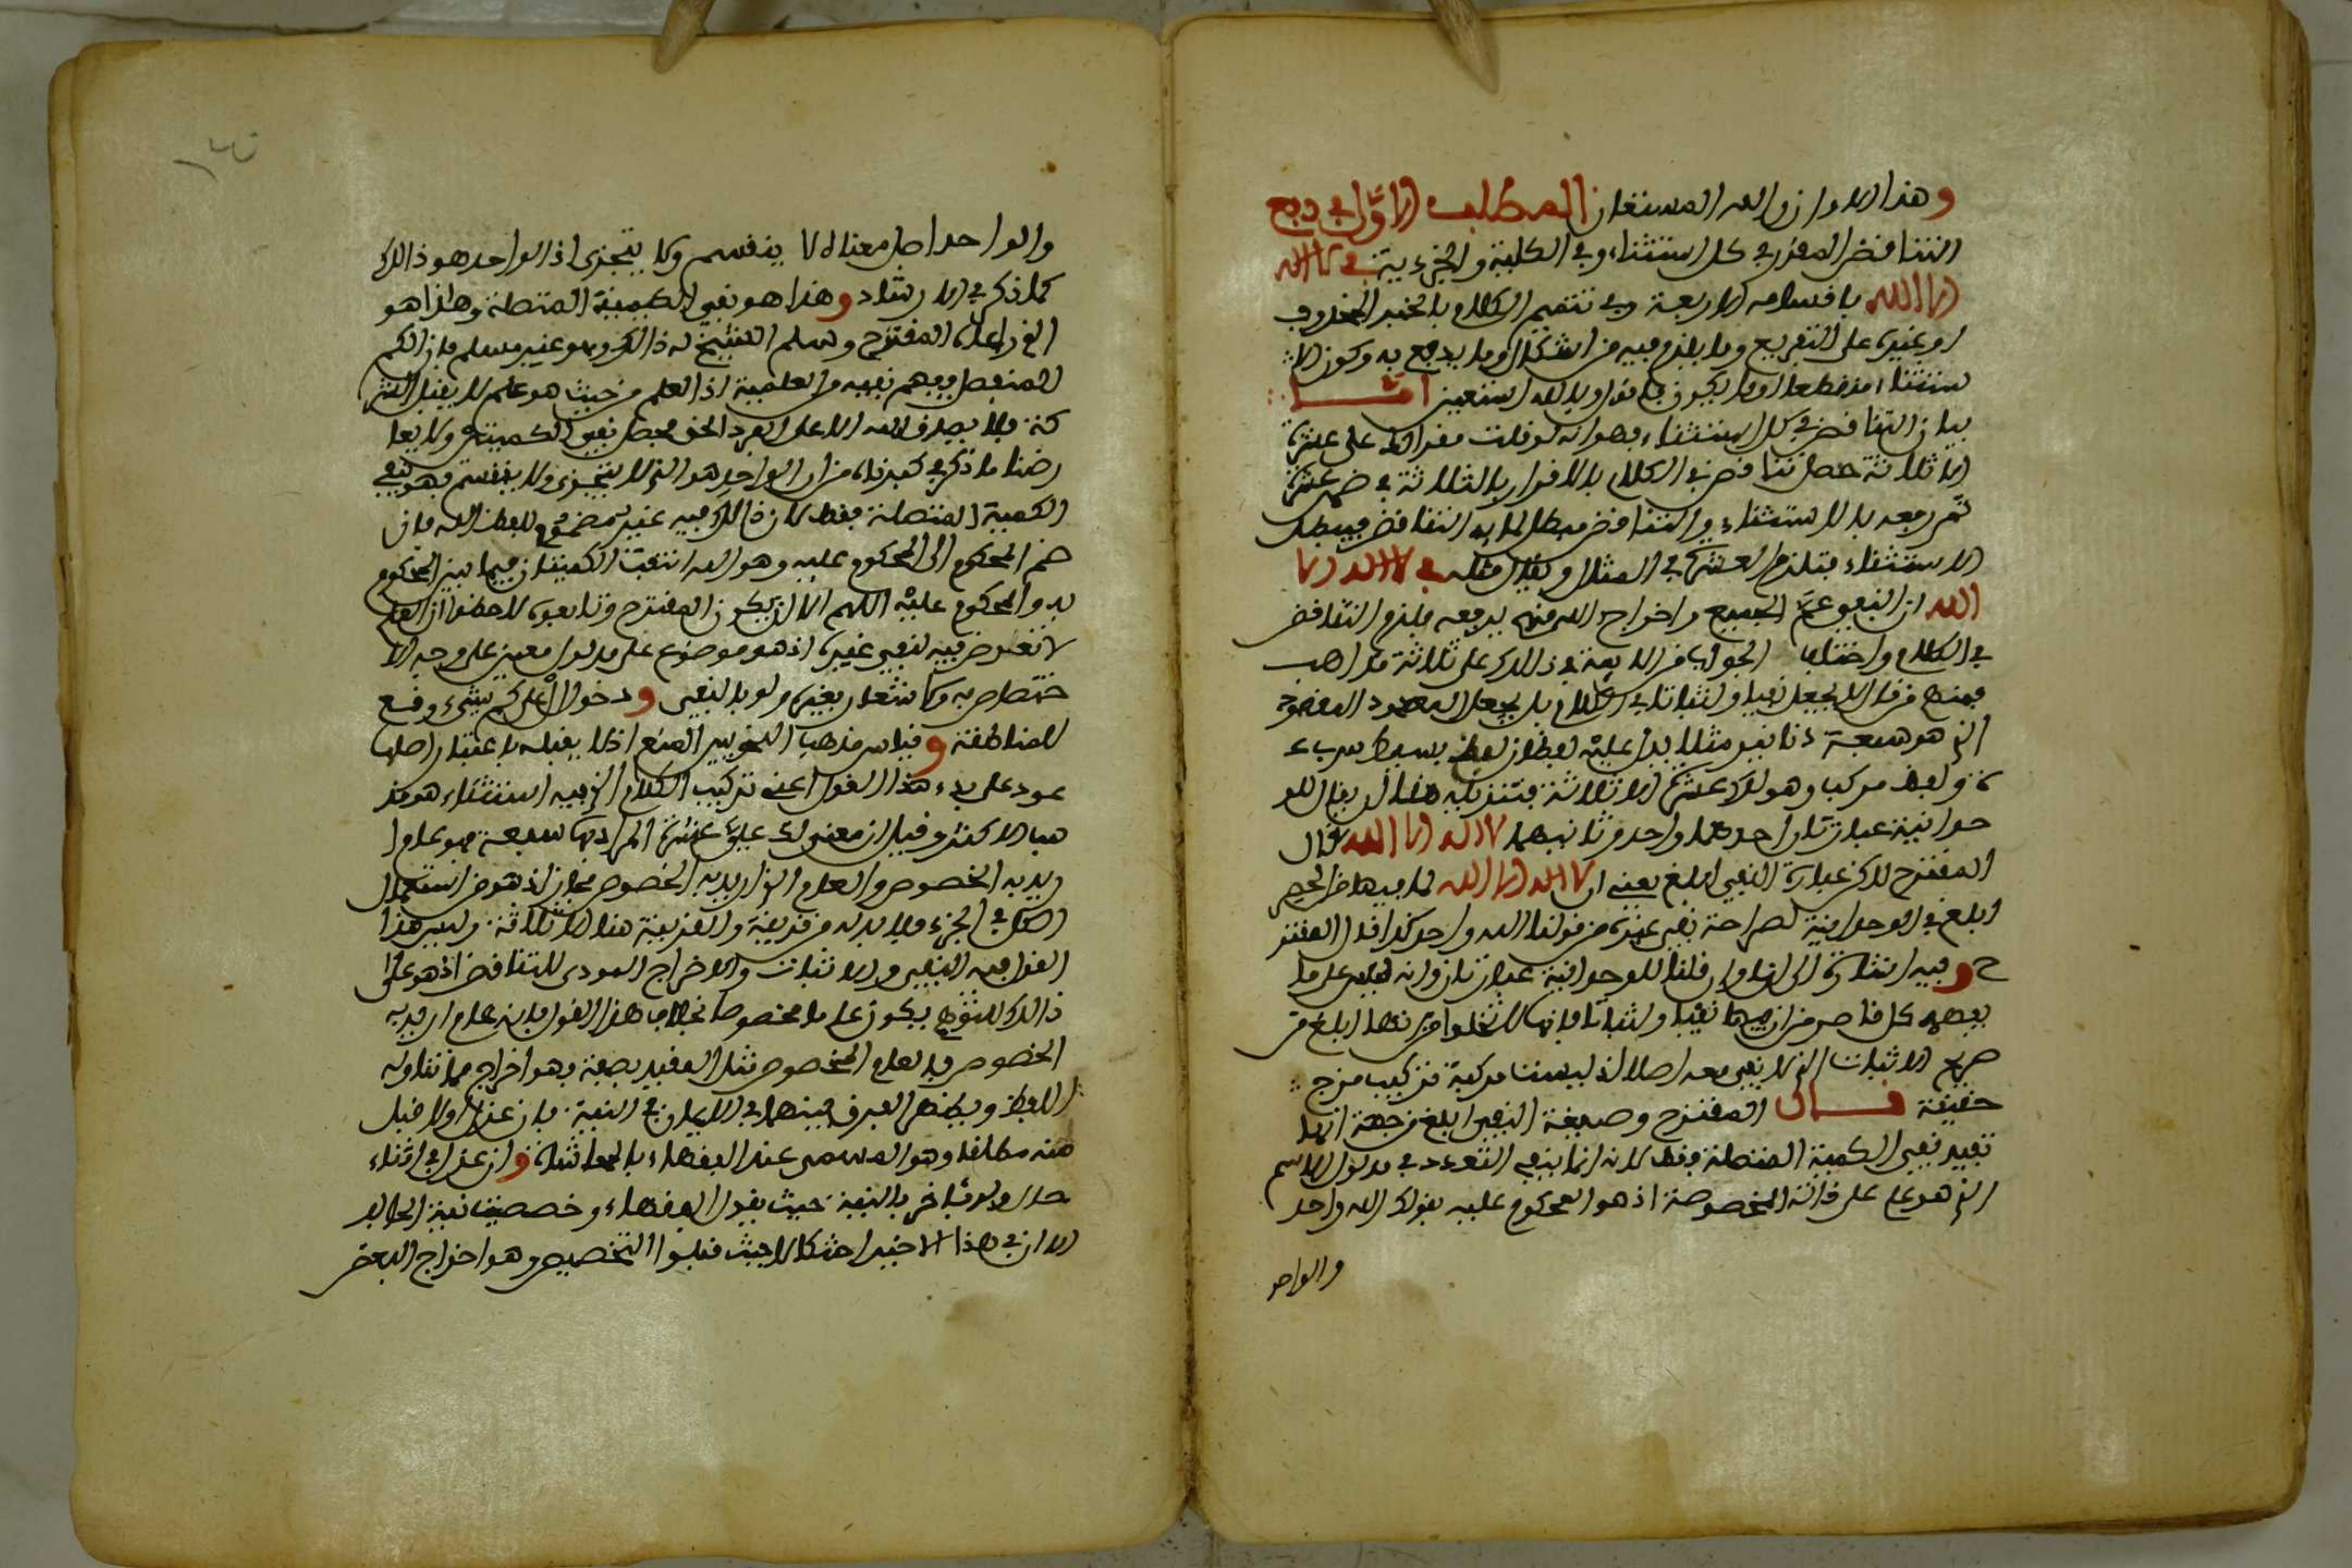 وهذا الاوان والله المستعان المطلب الاول في دفع
التناقض المقرر في كل استثناء وفي الكلية والجزءية في لا اله
الا الله باقسامه الاربعة وفي تتميم الكلام بالخبر المحذوف
او غيره على التفريع وما يلزم فيه من اشكال وما يدفع به وكون الا
ستثناء منقطعا او ما يكون فاقول وبالله استعين امـا
بيان التناقض في كل استثناء فهو انه لو قلت مقرا له علي عشرة
الا ثلاثة حصل تناقض في الكلام بالاقرار بالثلاثة في ضمن عشرة
ثم رفعه بالاستثناء والتناقض مبطل لما به التناقض فيبطل
الاستثناء فتلزم العشرة في المثال وكذا مثله في لا اله الا
الله ان النفي عم الجميع واخراج الله منهم يدفعه فلزم التناقض
في الكلام واختلف الجواب من الايمة في ذلك على ثلاثة مذاهب
فمنهم من قال لا يجعل نفيا واثباتا في الكلام بل يجعل المعدود المقصود
الذي هو سبعة دنانير مثلا يدل عليه لفظان لفظ بسيط سبعـ
ـة ولفظ مركب وهو لك عشرة الا ثلاثة فتنزيله هنا ان يقال للو
حدانية عبارتان احدهما واحد وثانيهما لا اله الا الله قال
المقترح لاكن عبارة النفي ابلغ يعني ان لا اله الا الله لما فيها من الحصر
ابلغ في الوحدانية لصراحة نفي غيره من قولنا الله واحد كذا قال المقتر
ح وفيه اشارة الى انا وان قلنا للوحدانية عبارتان وانه ليس على ما
يفهمه كل قاصر من ان فيها نفيا واثباتا فانها لا تخلوا من انها ابلغ من
صريح الاثبات الذي لا نفي معه اصلا اذ ليست مركبة تركيب مزج
حقيقة قـال المقترح وصيغة النفي ابلغ من جهة انها
تفيد نفي الكمية المتصلة فقط لانه انما ينفي التعدد في مدلول الاسم
الذي هو علم على ذاته المخصوصة اذ هو المحكوم عليه بقولك الله واحد
والواحد
والواحد اصل معناه لا ينقسم ولا يتجزى اذ الواحد هو ذالك
كما ذكر في الارشاد وهذا هو نفي الكمية المتصلة وهاذا هو
الذي ادعاه المقترح وسلم الشيخ له ذالك وهو غير مسلم فان الكم
المنفصل يفهم نفيه من العلمية اذ العلم من حيث هو علم لا يقبل الشر
كة فلا يصدق الله الا على الفرد الحق فحصل نفي الكميتين ولا يعا
رضنا ما ذكر في كبراه من ان الواحد هو الذي لا يتجزى ولا ينقسم فهو لنفي
الكمية المتصلة فقط لان ذالك فيه غير مضموم للفظ الله فان
ضم المحكوم الى المحكوم عليه وهو الله انتفت الكميتان فيما بين المحكوم
به والمحكوم عليه اللهم الا ان يكون المقترح وتابعوه لاحظوا ان العلم
لا تعرض فيه لنفي غيره اذ هو موضوع على مدلول معين على وجه الا
ختصاص به ولا اشعار بغيره ولو بالنفي ودخول ال على كم شيء وقع
للمناطقة وقياس مذهب النحويين المنع اذ لا يقبله باعتبار اصلها
عود على بدء هذا القول اعني تركيب الكلام الذي فيه استثناء هو مذ
هب الاكثر وقيل ان معنى له علي عشرة المراد بها سبعة فهو عام ا
ريد به الخصوص والعام الذي اريد به الخصوص مجاز اذ هو من استعمال
الكل في الجزء فلا بد له من قرينة والقرينة هنا الا ثلاثة وليس هذا
القول فيه النفي والاثبات والاخراج المودى للتناقض اذ هو على
ذالك التوهم يكون عاما مخصوصا بخلاف هذا القول فانه عام اريد به
الخصوص فالعام المخصوص مثل المقيد بصفة فهو اخراج مما تناوله
اللفظ ويظهر الفرق بينهما في الايمان في النية فان عزل اولا قبل
منه مطلقا وهو المسمى عند الفقهاء بالمحاشاة وان عزل في اثناء
حلفه اخر بالنية حيث يقول الفقهاء وخصصت نية الحالف
الا ان في هذا الاخير اشكالا حيث قبلوا التخصيص وهو اخراج البعض